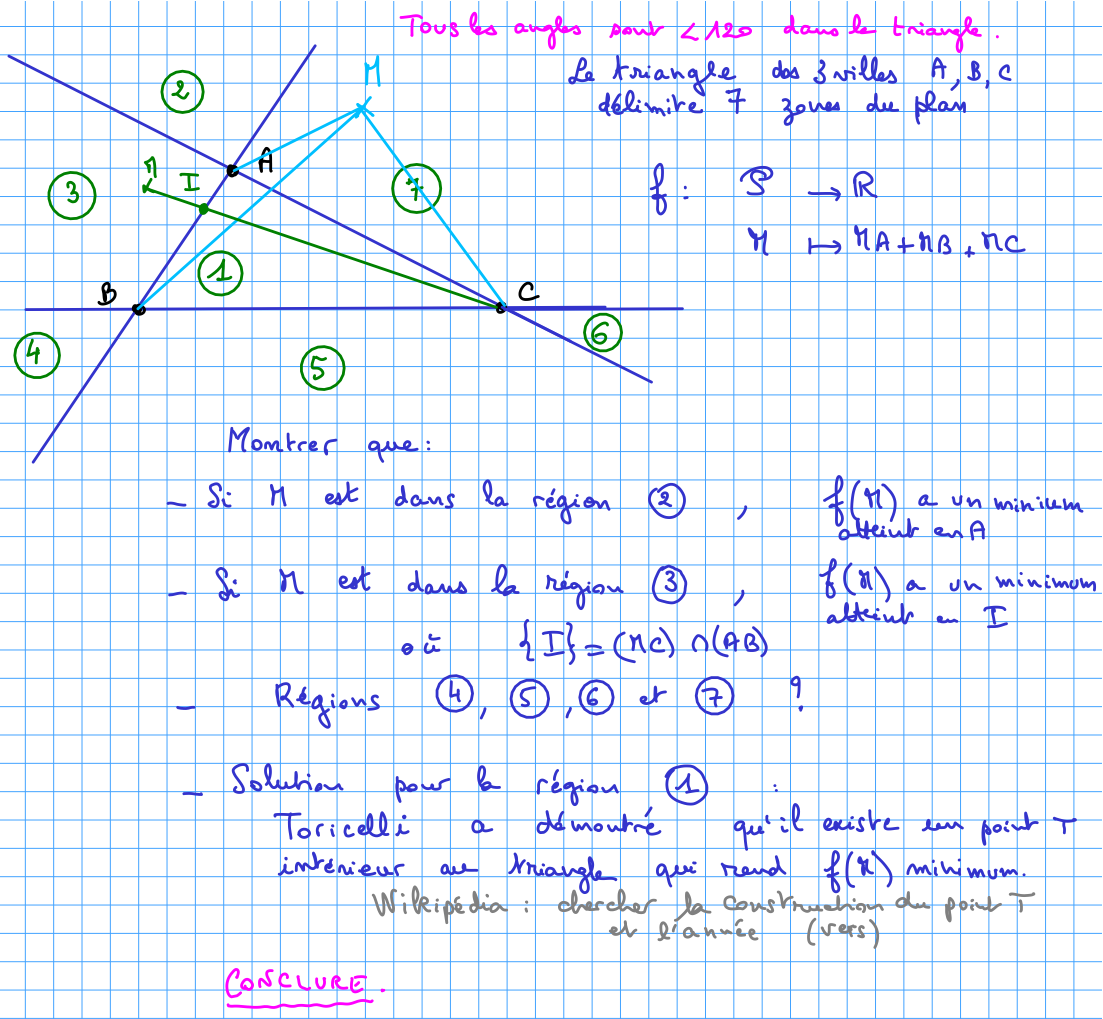 Tous les angles sont < 120 dans le triangle.
Le triangle des 3 villes A, B, C
délimite 7 zones du plan
M
2
A
M
I
3
7
f : P → R
M ↦ MA + MB + MC
1
B
C
4
5
6
Montrer que :
- Si M est dans la région 2 , f(M) a un minium
atteint en A
- Si M est dans la région 3 , f(M) a un minimum
atteint en I
où {I} = (MC) ∩ (AB)
- Régions 4 , 5 , 6 et 7 ?
- Solution pour la région 1 :
Toricelli a démontré qu'il existe un point T
intérieur au triangle qui rend f(M) minimum.
Wikipédia : chercher la construction du point T
et l'année (vers)
CONCLURE.